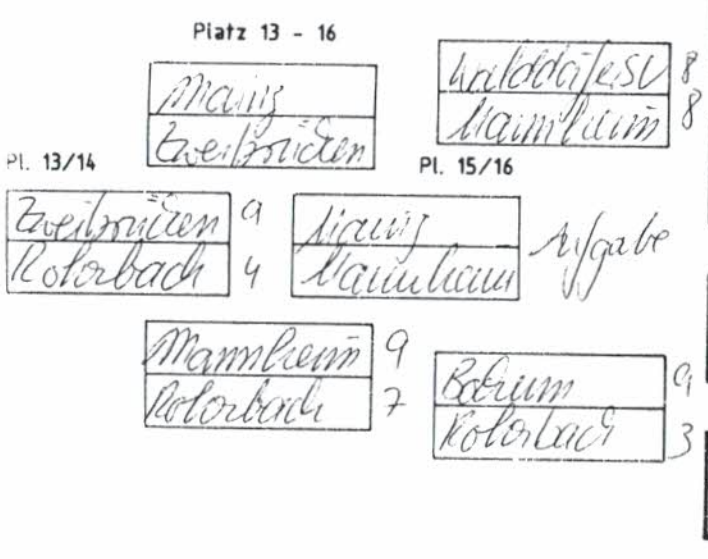 Platz 13 - 16
Mainz
Zweibrücken
8
Mannheim 8
Pl. 13/14
Zweibrücken 9
Rohrbach 4
Pl. 15/16
Mainz
Mannheim
Aufgabe
Mannheim 9
Rohrbach 7
Bochum 9
Rohrbach 3